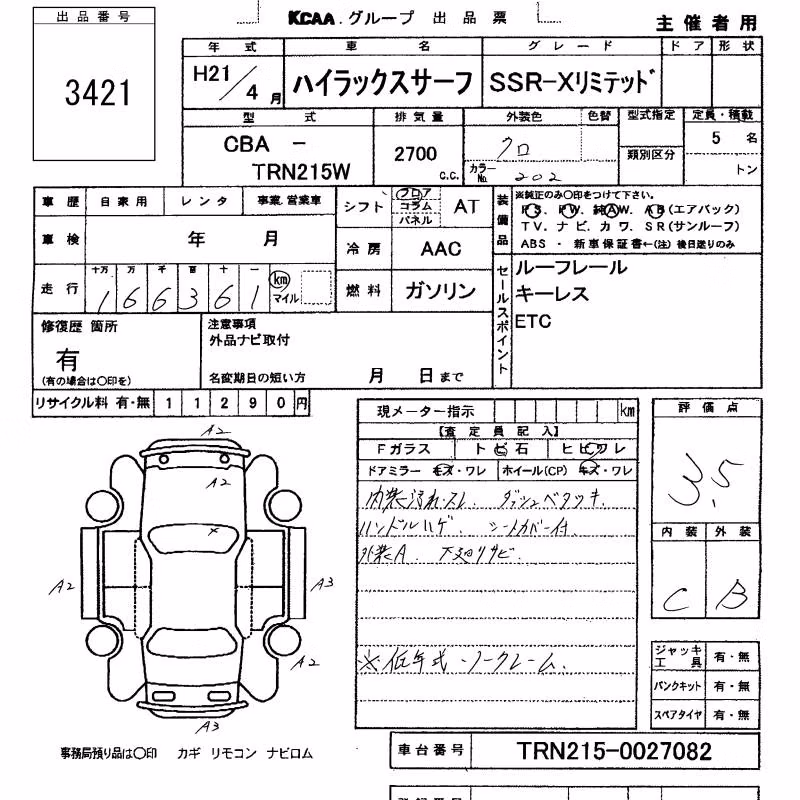 出品番号
3421
KCAA.グループ 出品票
主催者用
年式 車名 グレード ドア 形状
H21/4月 ハイラックスサーフ SSR-Xリミテッド
型式 排気量 外装色 色替 型式指定 定員・積載
CBA - TRN215W
2700 c.c.
クロ
カラーNo. 202
類別区分
5 名
トン
車歴 自家用 レンタ 事業.営業車
シフト フロア コラム パネル AT
装備品
※純正のみ○印をつけて下さい。
PS. PW. 純AW. AB(エアバック)
TV. ナビ. カワ. SR(サンルーフ)
ABS ・ 新車保証書←(注) 後日送りのみ
車検 年 月
冷房 AAC
走行 十万 万 千 百 十 一
166361 km マイル
燃料 ガソリン
セールスポイント
ルーフレール
キーレス
ETC
修復歴 箇所
有
(有の場合は○印を)
注意事項
外品ナビ取付
名変期日の短い方 月 日まで
リサイクル料 有・無 11290円
現メーター指示 km
【査定員記入】
Fガラス トビ石 ヒビワレ
ドアミラー キズ・ワレ ホイール(CP) キズ・ワレ
内装汚れスレ. ダッシュベタツキ.
ハンドルハゲ. シートカバー付.
外装A. 下廻りサビ.
※低年式・ノークレーム.
評価点
3.5
内装 外装
C B
ジャッキ工具 有・無
パンクキット 有・無
スペアタイヤ 有・無
A2
A2
×
A2 A3
A2
A3
事務局預り品は○印 カギ リモコン ナビロム
車台番号 TRN215-0027082